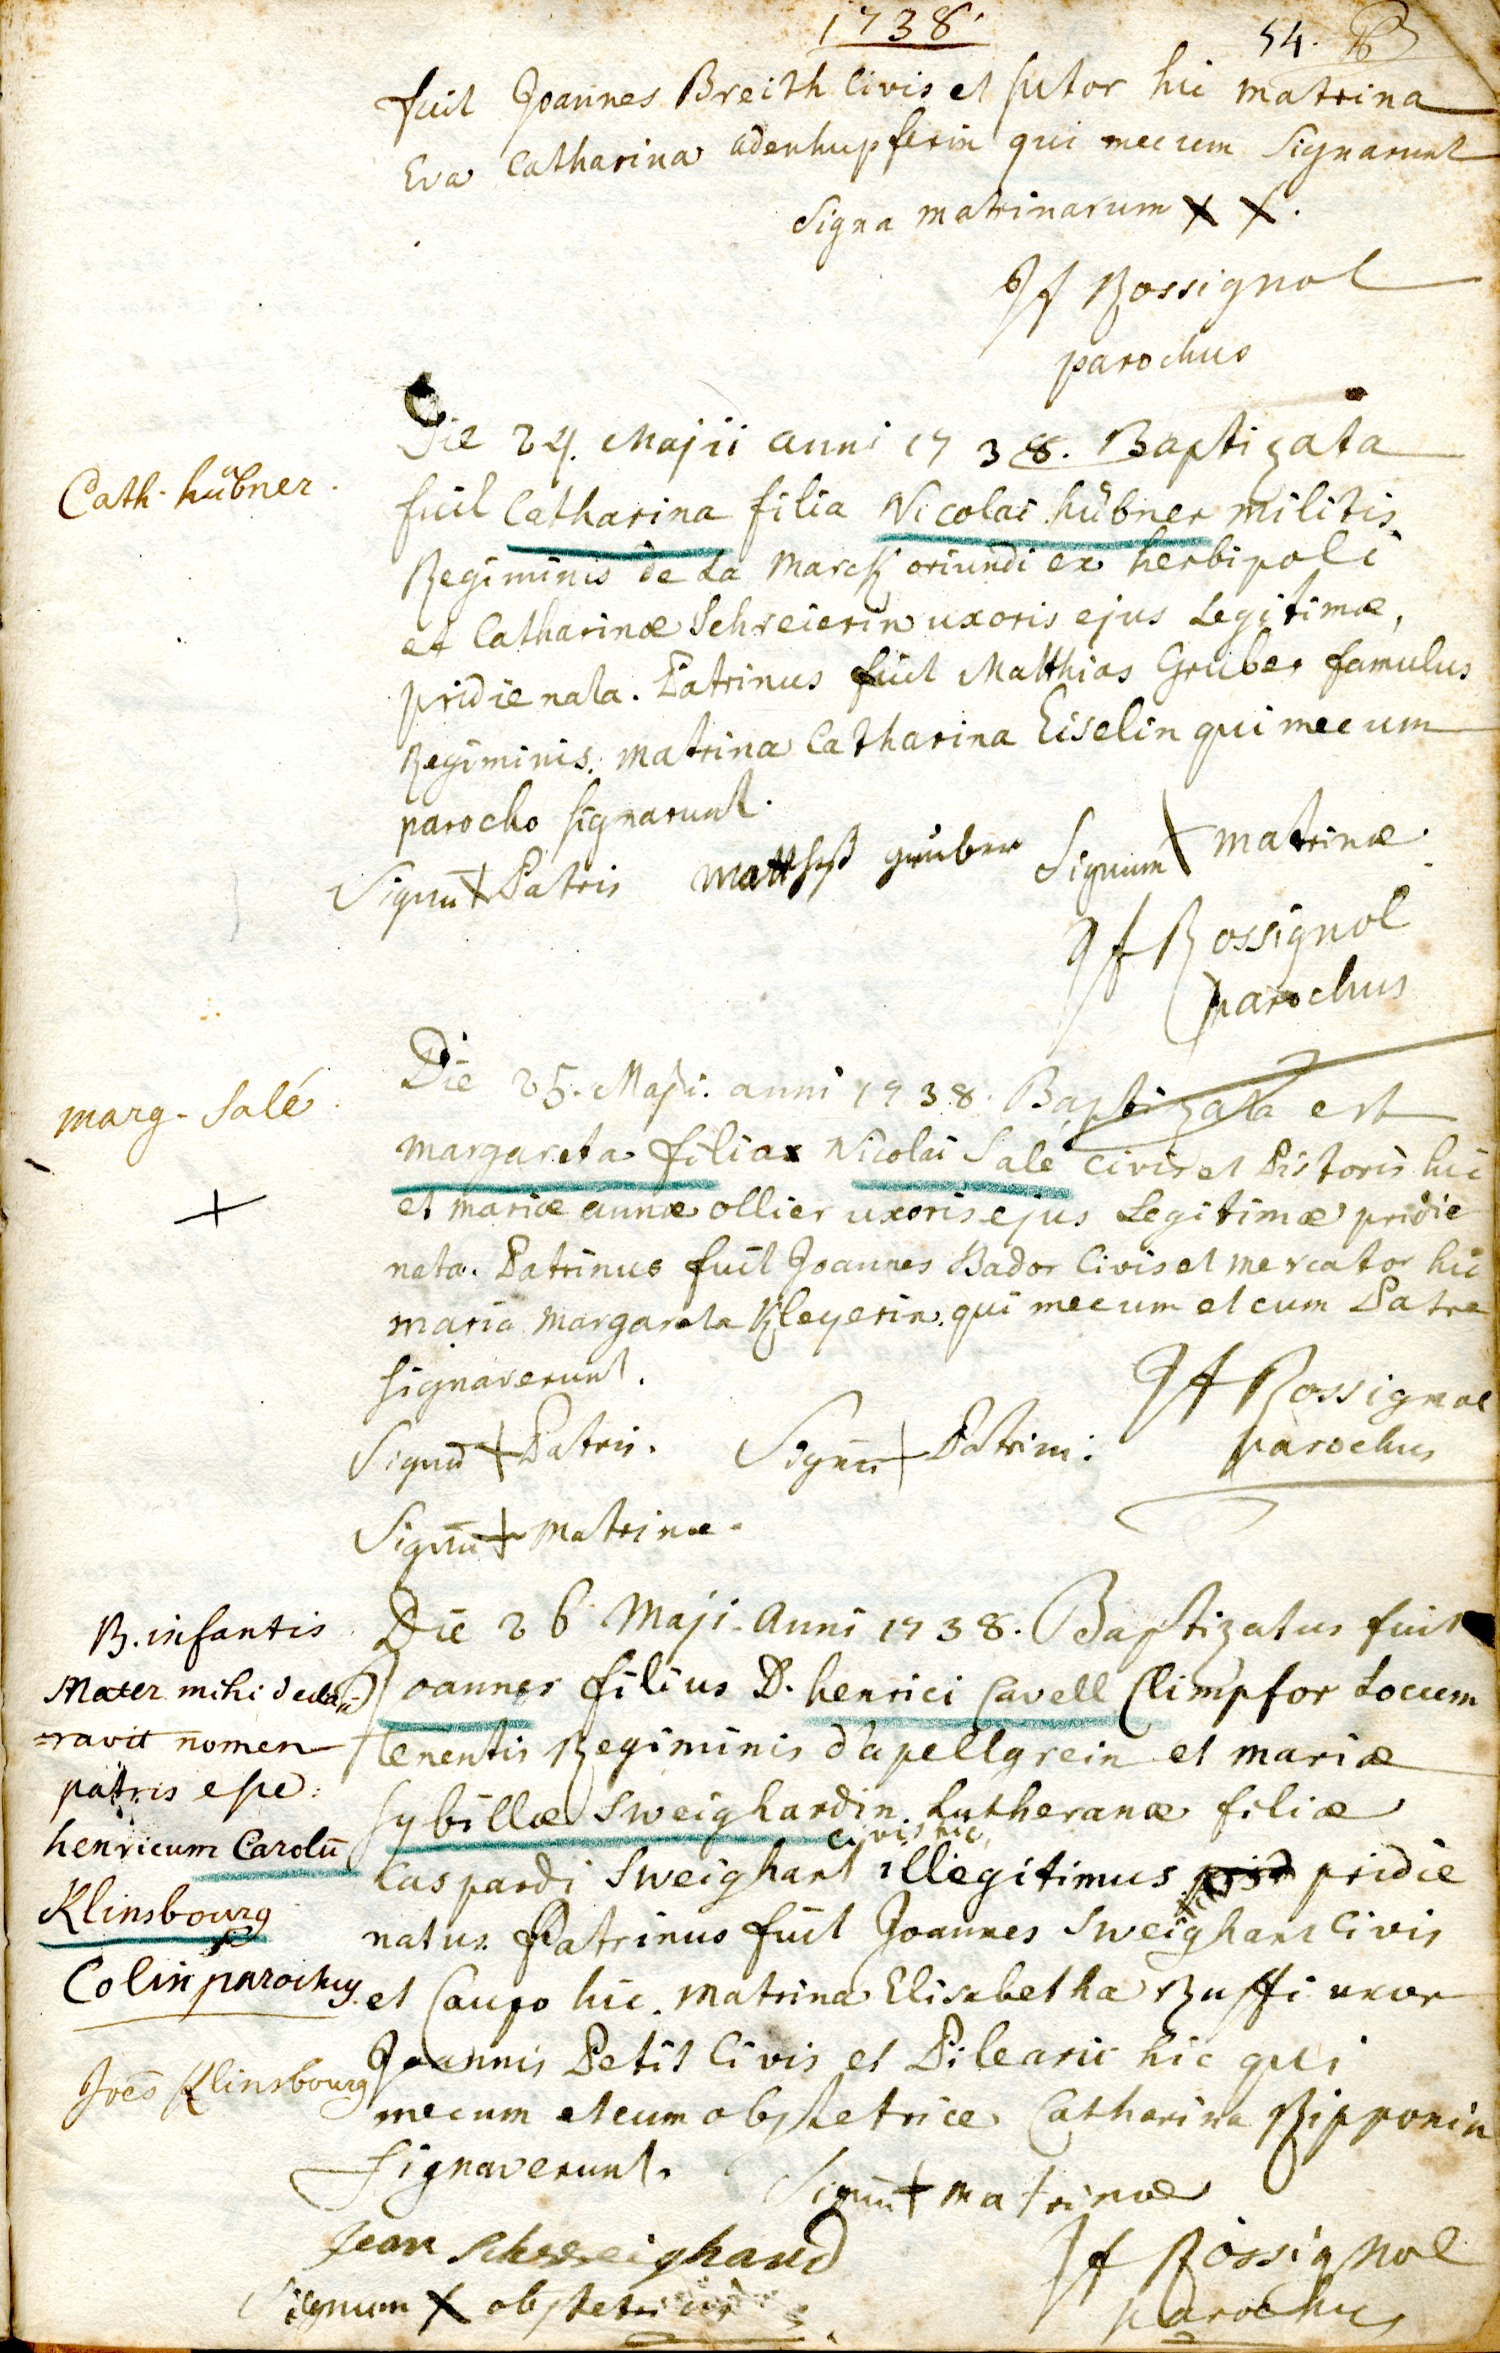 1738.
54.
fuit Joannes Breith Civis et sutor hic matrina
Eva Catharina adenhupferin qui mecum signarunt
signa matrinarum X X.
Jf Rossignol
parochus
Die 24. Maji anni 1738. Baptizata
Cath. hübner.
fuit Catharina filia Nicolai hübner militis
Regiminis de La Marck oriundi ex herbipoli
et Catharinæ Schreierin uxoris ejus Legitimæ,
pridie nata. Patrinus fuit Matthias Gruber famulus
Regiminis. matrina Catharina Eiselin qui mecum
parocho signarunt.
Signū + Patris Matthess gruber Signum + matrinæ.
Jf Rossignol
parochus
Die 25. Maji. anni 1738. Baptizata est
marg. Salé
margareta filia Nicolai Salé Civis et Pistoris hic
+
et mariæ annæ ollier uxoris ejus Legitimæ pridie
nata. Patrinus fuit Joannes Bador Civis et mercator hic
maria margareta Kleyerin. qui mecum et cum Patre
signaverunt.
Jf Rossignol
parochus
Signū + Patris. Signū + Patrini.
Signū + matrinæ.
Die 26 Maji. Anni 1738. Baptizatus fuit
Joannes filius D. henrici Cavell Climpfor Locum
tenentis Regiminis d'apellgrein et mariæ
sybillæ Sweighardin Lutheranæ filiæ
civis hic,
Caspardi Sweighart illegitimus prid pridie
natus. Patrinus fuit Joannes Sweighart Civis
et Caupo hic. matrina Elisabetha Ruffi uxor
Joannis Petit Civis et Pilearii hic qui
mecum et cum obstetrice Catharina Ripponin
signaverunt.
Signū + matrinæ
Jean Schweighard
Jf Rossignol
parochus
Signum X obstetricis
B. infantis
Mater mihi decla-
=ravit nomen
patris esse:
henricum Carolū
Klinsbourg
Colin parochus.
Joēs Klinsbourg